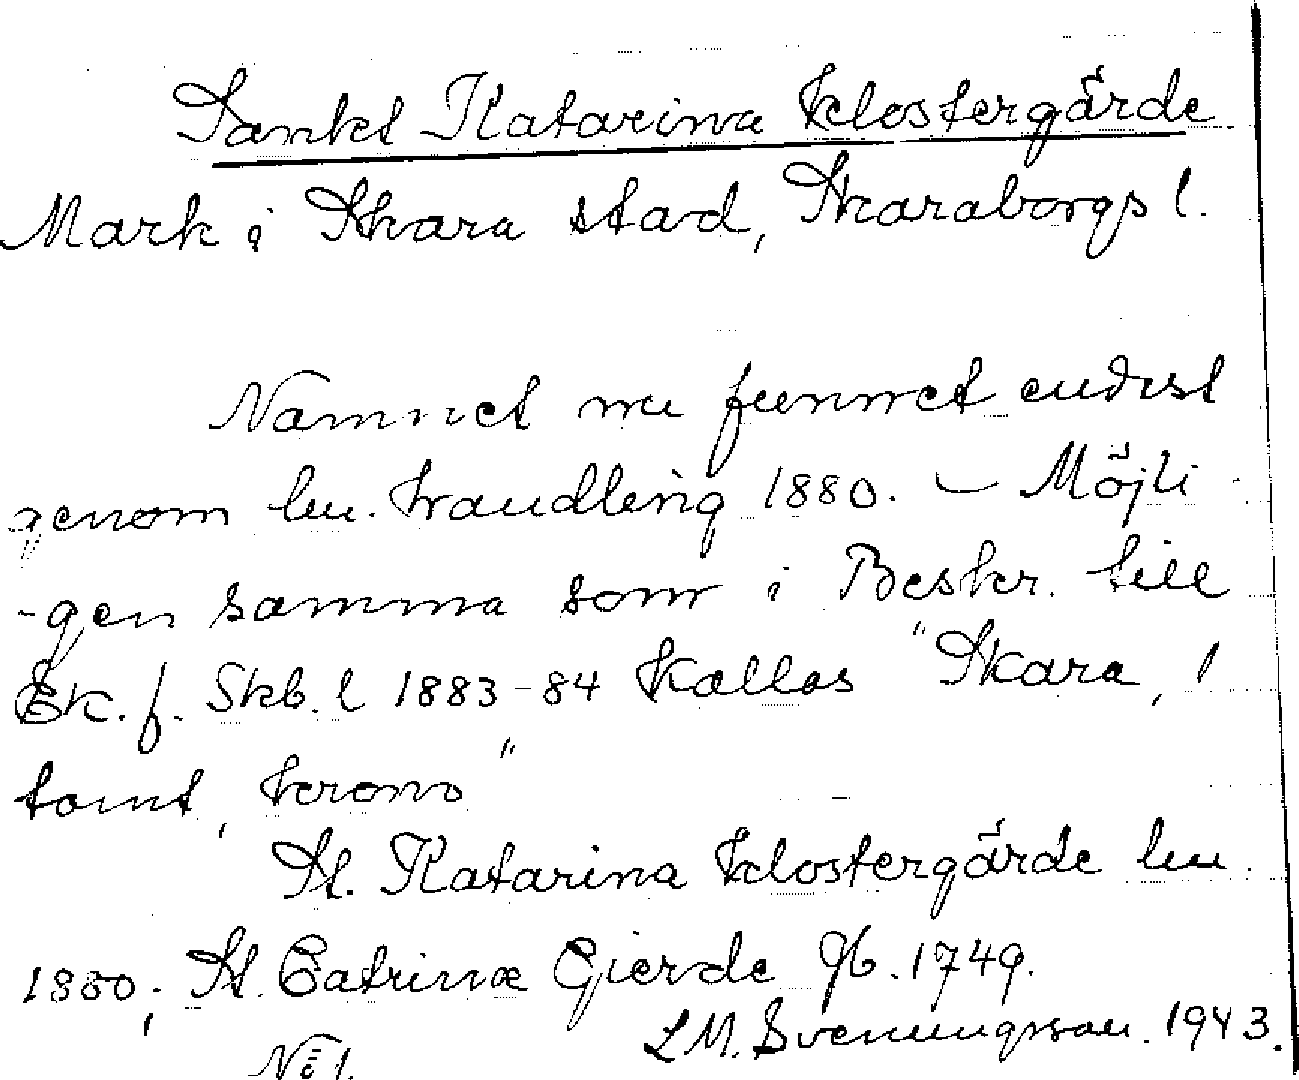 Sankt Katarina klostergärde
Mark i Skara stad, Skaraborgs l.
Namnet nu funnet endast
genom lm. handling 1880. – Möjli
-gen samma som i Beskr. till
Ek. f. Skb. l 1883-84 kallas "Skara, 1
tomt, krono"
St. Katarina klostergärde lm
1880; St. Catrinæ Gierde Jb. 1749.
L M. Svenungsson. 1943.
No 1.